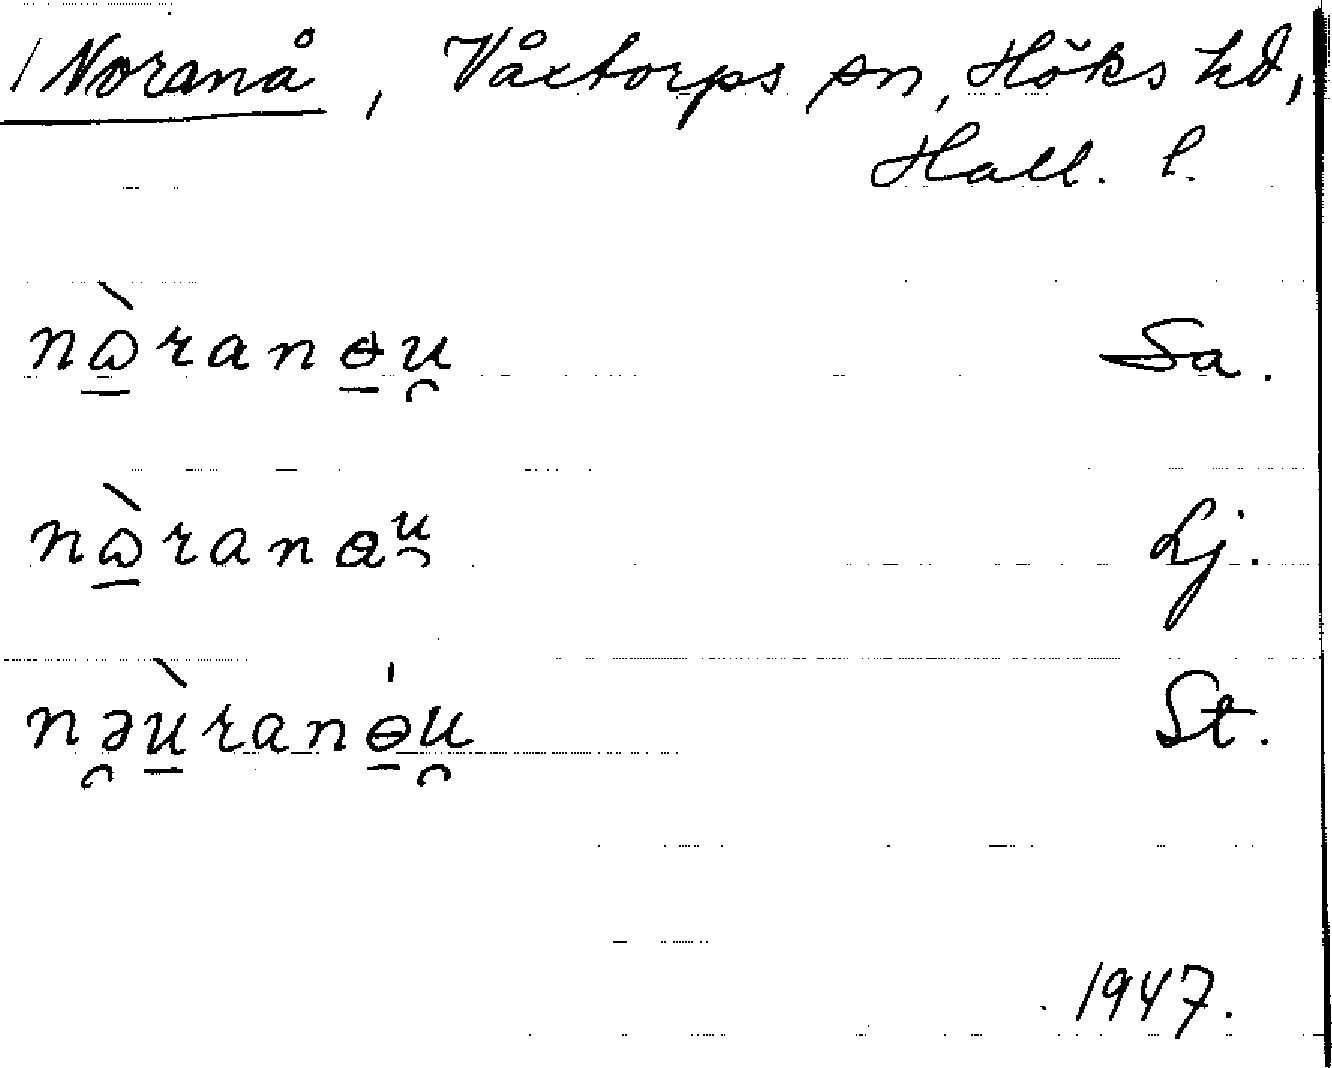 / Noranå, Våxtorps sn, Höks hd,
Hall. l.
nɷ̠̀ranɵ̠u̯ Sa.
nɷ̠̀ranɑᵘ̯ Lj.
nə̯ù̠ranɵ̠́u̯ St.
1947.